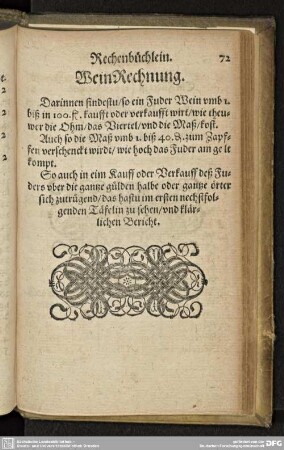 Rechenbüchlein. 72
WeinRechnung.
Darinnen findestu/so ein Fuder Wein vmb 1.
biß in 100. fl. kaufft oder verkaufft wirt/wie theu-
wer die Ohm/das Viertel/vnd die Maß/kost.
Auch so die Maß vmb 1. biß 40. ₰. zum Zapf-
fen verschenckt wirdt/wie hoch das Fuder an gelt
kompt.
So auch in eim Kauff oder Verkauff deß Fu-
ders vber die gantze gülden halbe oder gantze örter
sich zutrügend/das hastu im ersten nechstfol-
genden Täfelin zu sehen/vnd klär-
lichen Bericht.
DFG